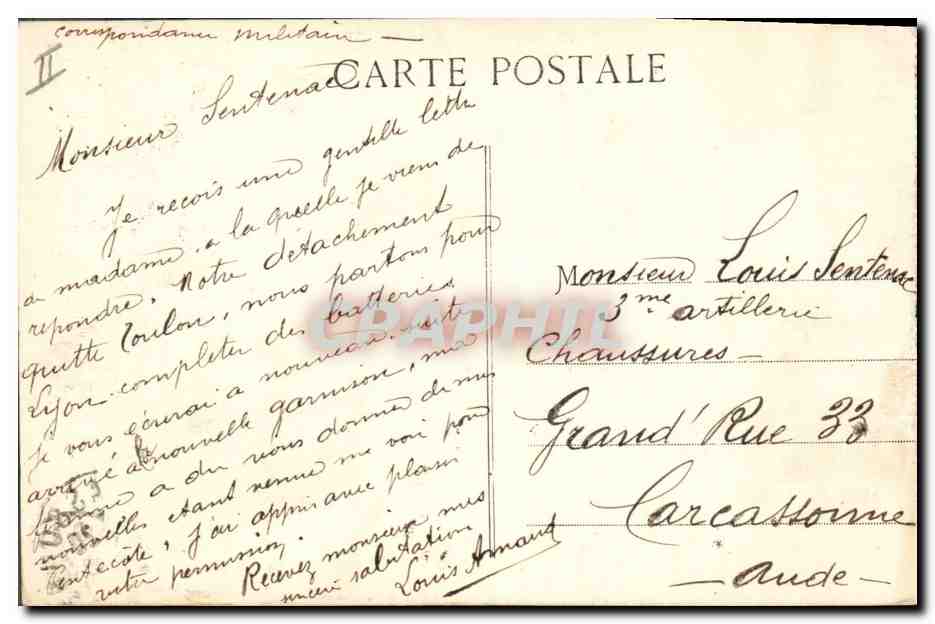 correspondance militaire —
II
CARTE POSTALE
Monsieur Sentenac
Je reçois une gentille lettre
a madame. a la quelle je viens de
repondre. Notre détachement
quitte Toulon, nous partons pour
Lyon completer des batteries
je vous écrirai a nouveau suite
arrivé a la nouvelle garnison, ma
femme a du vous donner de mes
nouvelles étant venue me voir pour
Pentecôte, j'ai appris avec plaisir
votre permission.
Recevez monsieur mes
sincère salutation
Louis Arnaud
Monsieur Louis Sentenac
3me artillerie
Chaussures —
Grand' Rue 33
Carcassonne
— Aude —
CRAPHIL